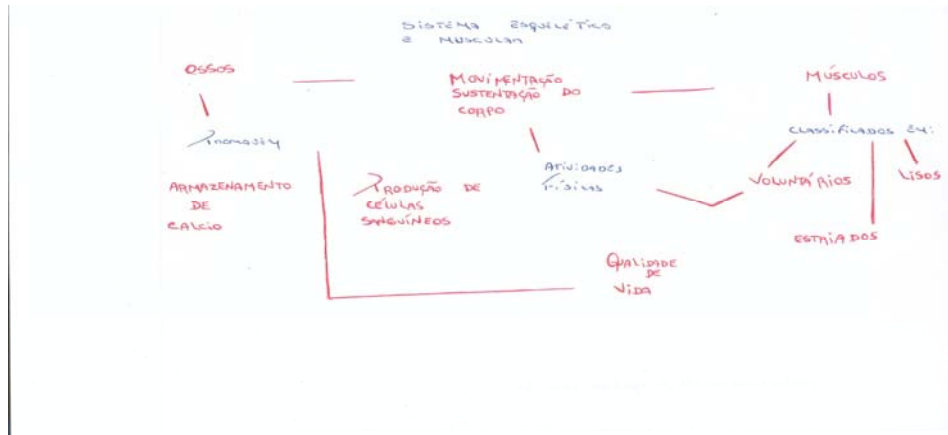 SISTEMA ESQUELÉTICO
E MUSCULAR
OSSOS
MOVIMENTAÇÃO
SUSTENTAÇÃO DO
CORPO
MÚSCULOS
PROMOVEM
CLASSIFICADOS EM:
ARMAZENAMENTO
DE
CALCIO
PRODUÇÃO DE
CÉLULAS
SANGUÍNEOS
ATIVIDADES
FÍSICAS
VOLUNTÁRIOS
LISOS
ESTRIADOS
QUALIDADE
DE
VIDA